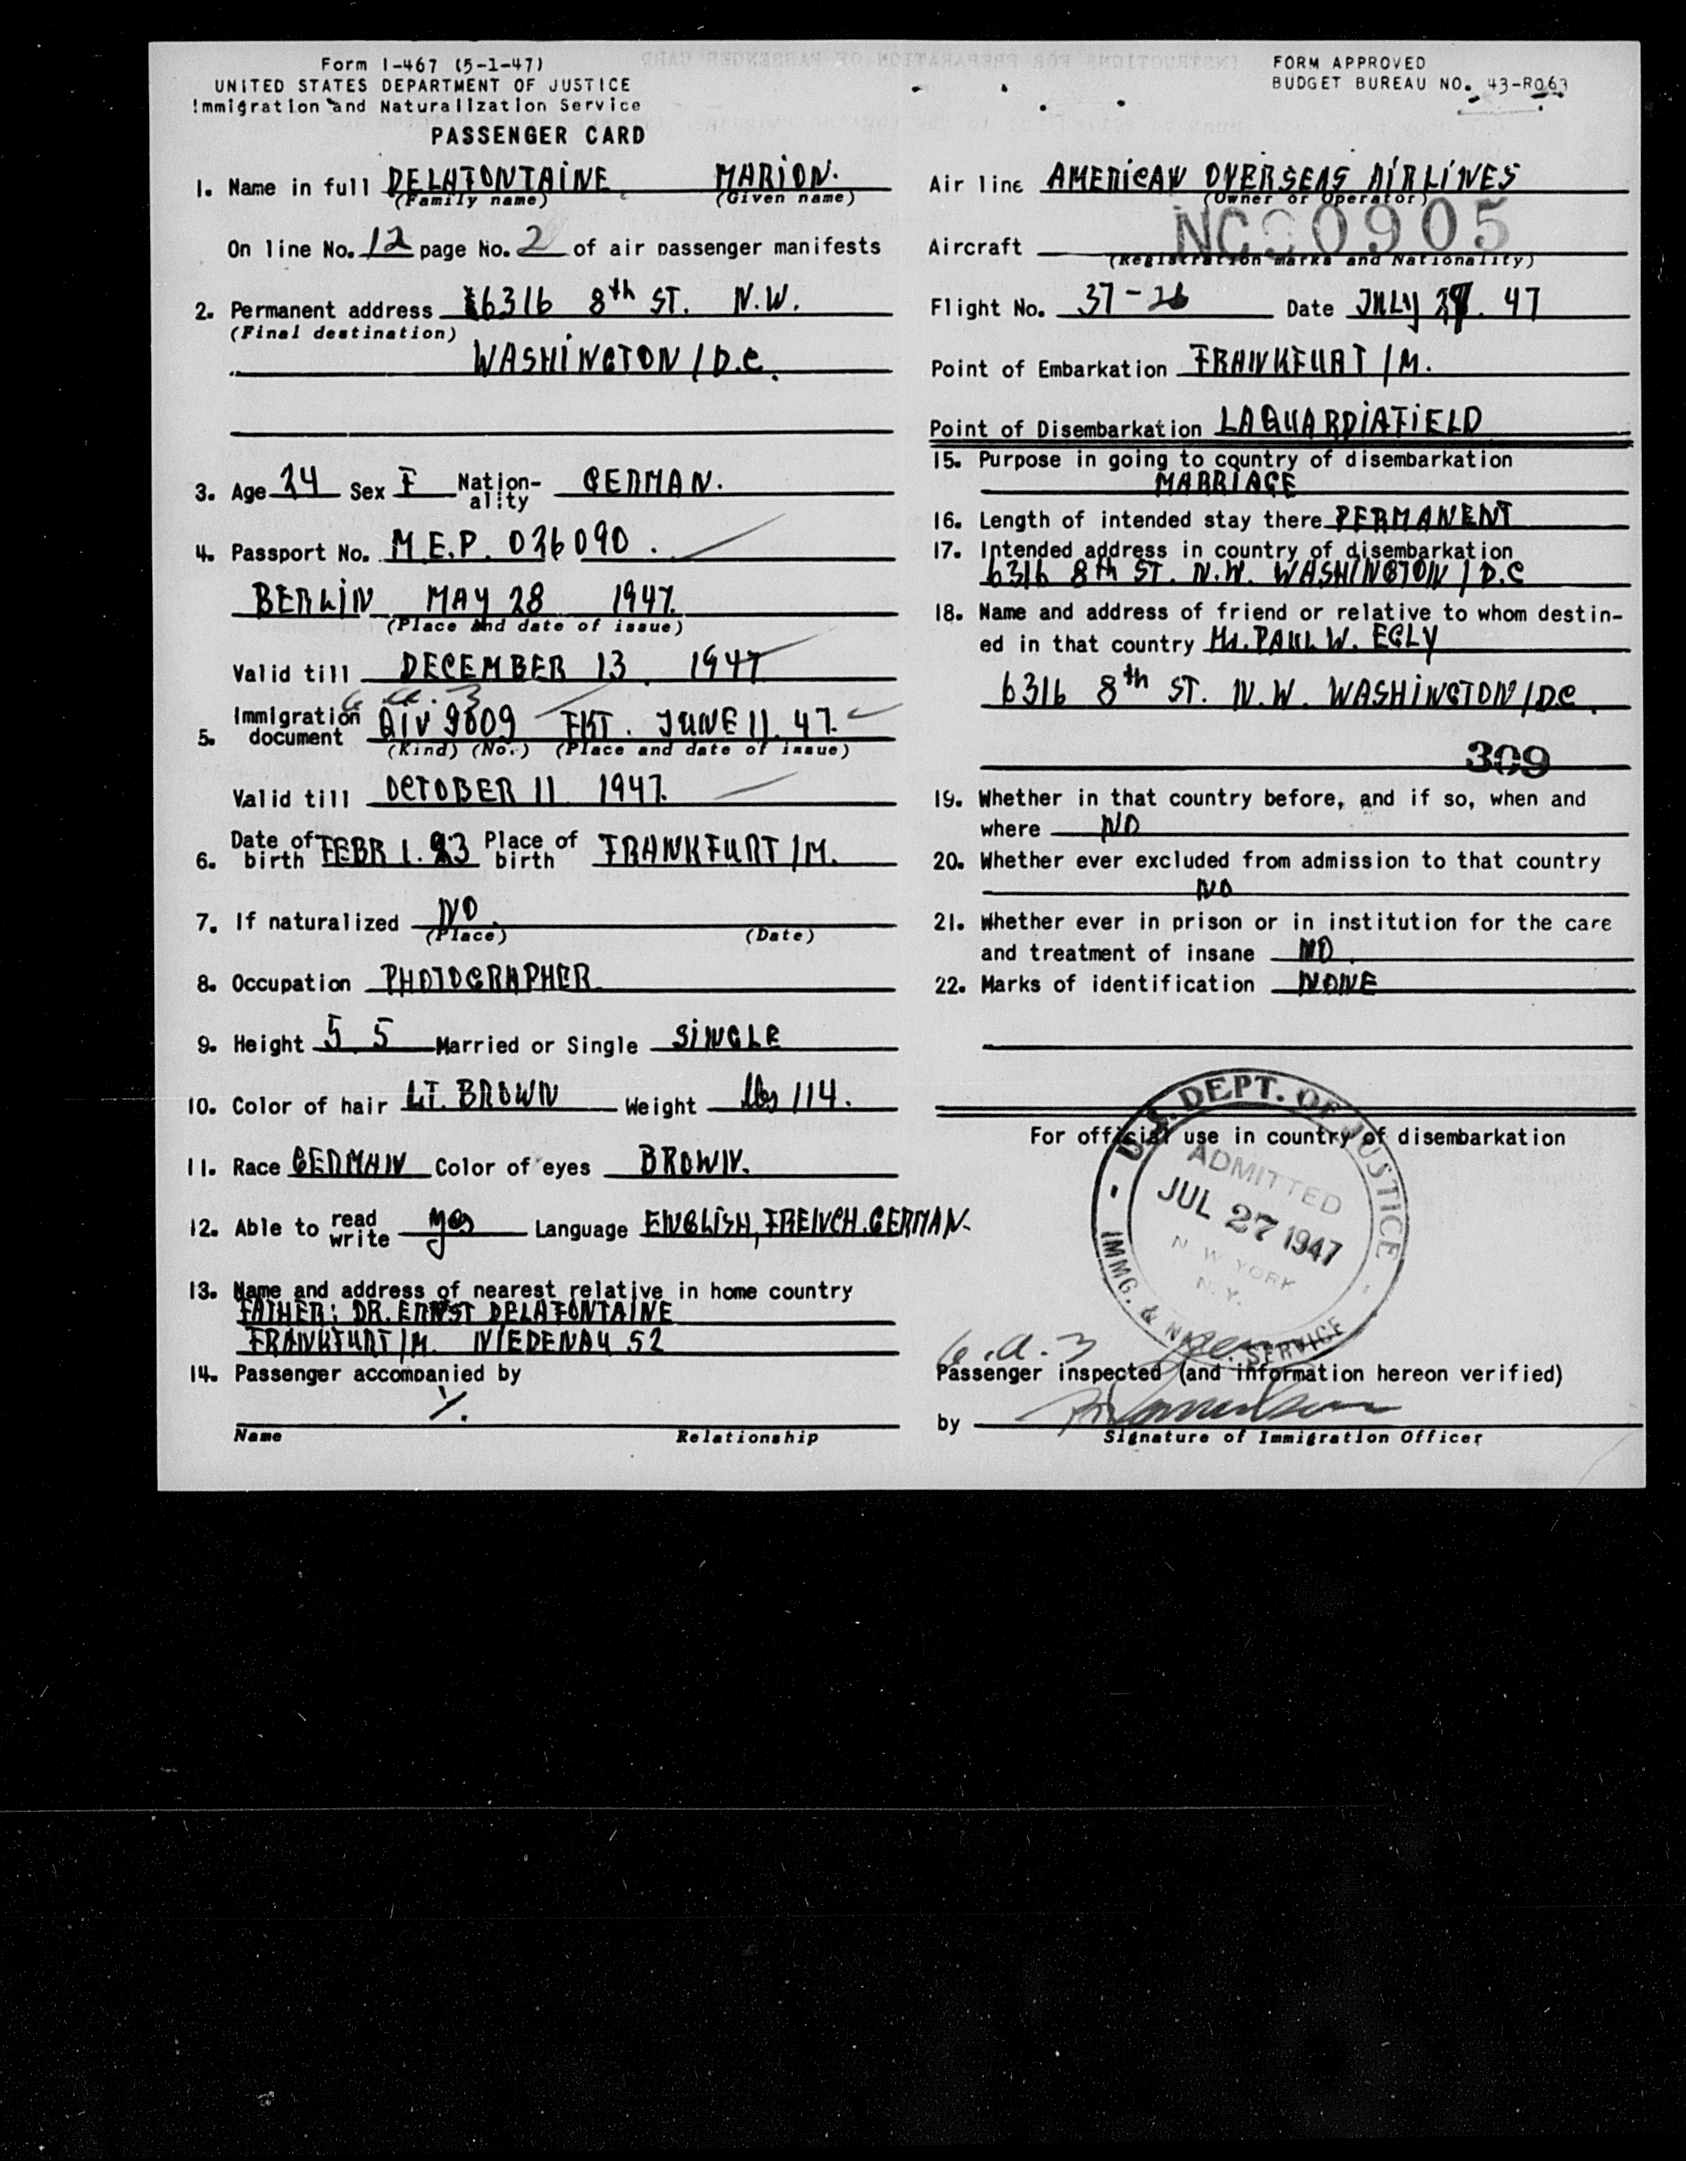 Form I-467 (5-1-47)
UNITED STATES DEPARTMENT OF JUSTICE
Immigration and Naturalization Service
PASSENGER CARD
FORM APPROVED
BUDGET BUREAU NO. 43-R063
1. Name in full DELAFONTAINE, MARION.
(Family name) (Given name)
On line No. 12 page No. 2 of air passenger manifests
2. Permanent address 6316 8th ST. N.W.
(Final destination)
WASHINGTON / D.C.
3. Age 24 Sex F Nationality GERMAN.
4. Passport No. M.E.P. 036090.
BERLIN MAY 28 1947.
(Place and date of issue)
Valid till DECEMBER 13. 1947
6.a.3
5. Immigration document QIV 9609 FKT. JUNE 11. 47.
(Kind) (No.) (Place and date of issue)
Valid till OCTOBER 11 1947.
6. Date of birth FEBR 1. 23 Place of birth FRANKFURT / M.
7. If naturalized NO.
(Place) (Date)
8. Occupation PHOTOGRAPHER
9. Height 5 5 Married or Single SINGLE
10. Color of hair LT. BROWN Weight lbs 114.
11. Race GERMAN Color of eyes BROWN.
12. Able to read write yes Language ENGLISH, FRENCH. GERMAN.
13. Name and address of nearest relative in home country
FATHER: DR. ERNST DELAFONTAINE
FRANKFURT / M. NIEDENAU 52
14. Passenger accompanied by
Name Relationship
Air line AMERICAN OVERSEAS AIRLINES
(Owner or Operator)
Aircraft NC90905
(Registration marks and Nationality)
Flight No. 37-26 Date JULY 47
Point of Embarkation FRANKFURT / M.
Point of Disembarkation LAGUARDIAFIELD
15. Purpose in going to country of disembarkation
MARRIAGE
16. Length of intended stay there PERMANENT
17. Intended address in country of disembarkation
6316 8th ST. N.W. WASHINGTON / D.C
18. Name and address of friend or relative to whom destin-
ed in that country Mr. PAUL W. EGLY
6316 8th ST. N.W. WASHINGTON / DC.
309
19. Whether in that country before, and if so, when and
where NO
20. Whether ever excluded from admission to that country
NO
21. Whether ever in prison or in institution for the care
and treatment of insane NO.
22. Marks of identification NONE
For official use in country of disembarkation
U.S. DEPT. OF JUSTICE
ADMITTED
JUL 27 1947
N. W YORK
N.Y.
IMMG. & NAT. SERVICE
6.a.3
Passenger inspected (and information hereon verified)
by
Signature of Immigration Officer